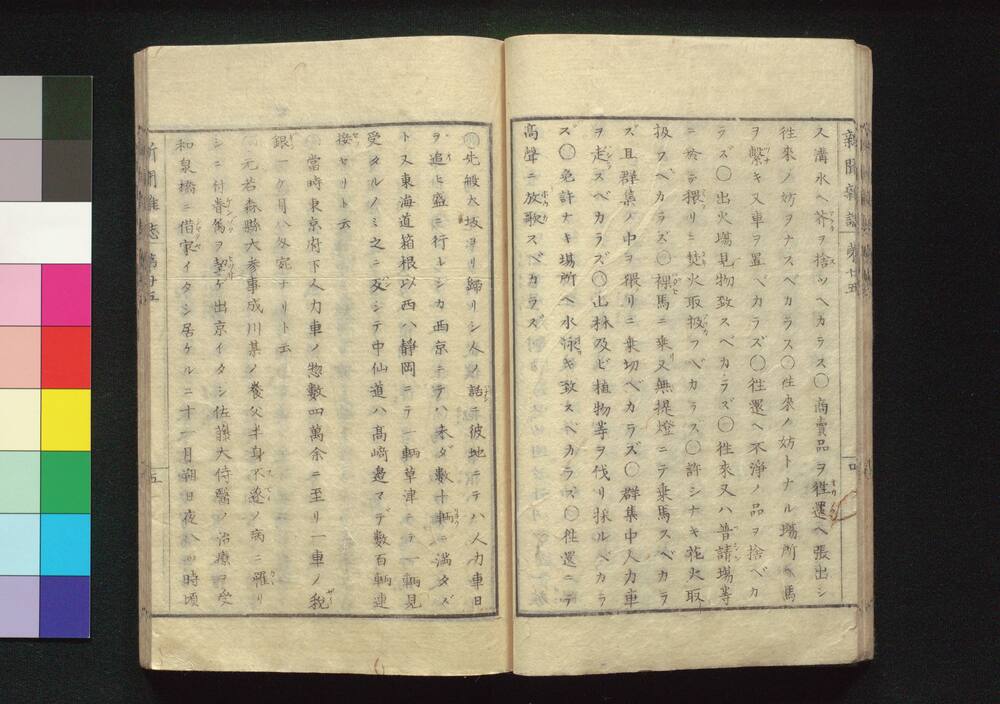 新聞雜誌 第廿五
ス溝水ヘ芥ヲ捨ツヘカラス〇商賣品ヲ徃還ヘ張出シ
徃來ノ妨ヲナスベカラス〇徃來ノ妨トナル場所ヘ馬
ヲ繋キ又車ヲ置ベカラズ〇徃還ヘ不淨ノ品ヲ捨ベカ
ラズ〇出火場見物致スベカラズ〇徃來又ハ普請場等
ニ於テ猥リニ焚火取扱フベカラス〇許シナキ花火取
扱フベカラズ〇裸馬ニ乗リ又無提燈ニテ乗馬スベカラ
ズ且群集ノ中ヲ猥リニ乗切ベカラズ〇群集中人力車
ヲ走スベカラズ〇山林及ビ植物等ヲ伐リ採ルベカラ
ズ〇免許ナキ場所ヘ水泳キ致スベカラズ〇徃還ニテ
高聲ニ放歌スベカラズ
〇先般大坂ヨリ歸リシ人ノ話ニ彼地ニテハ人力車日
ヲ追ヒ盛ニ行トシカ西京ニテハ未ダ數十輌ニ満タズ
ト又東海道箱根以西ハ静岡ニテ一輌草津ニテ一輌見
受タルノミ之ニ反シテ中仙道ハ高﨑邉マデ數百輌連
接セリト云
〇當時東京府下人力車ノ惣數四萬余ニ至リ一車ノ税
銀一ケ月八匁宛ナリト云
〇元若森縣大参事成川某ノ養父半身不遂ノ病ニ罹リ
シニ付眷属ヲ挈ケ出京イタシ佐藤大侍醫ノ治療ヲ受
和泉橋ニ借家イタシ居ケルニ十一月朔日夜八ツ時頃
新聞雜志 第廿五
五